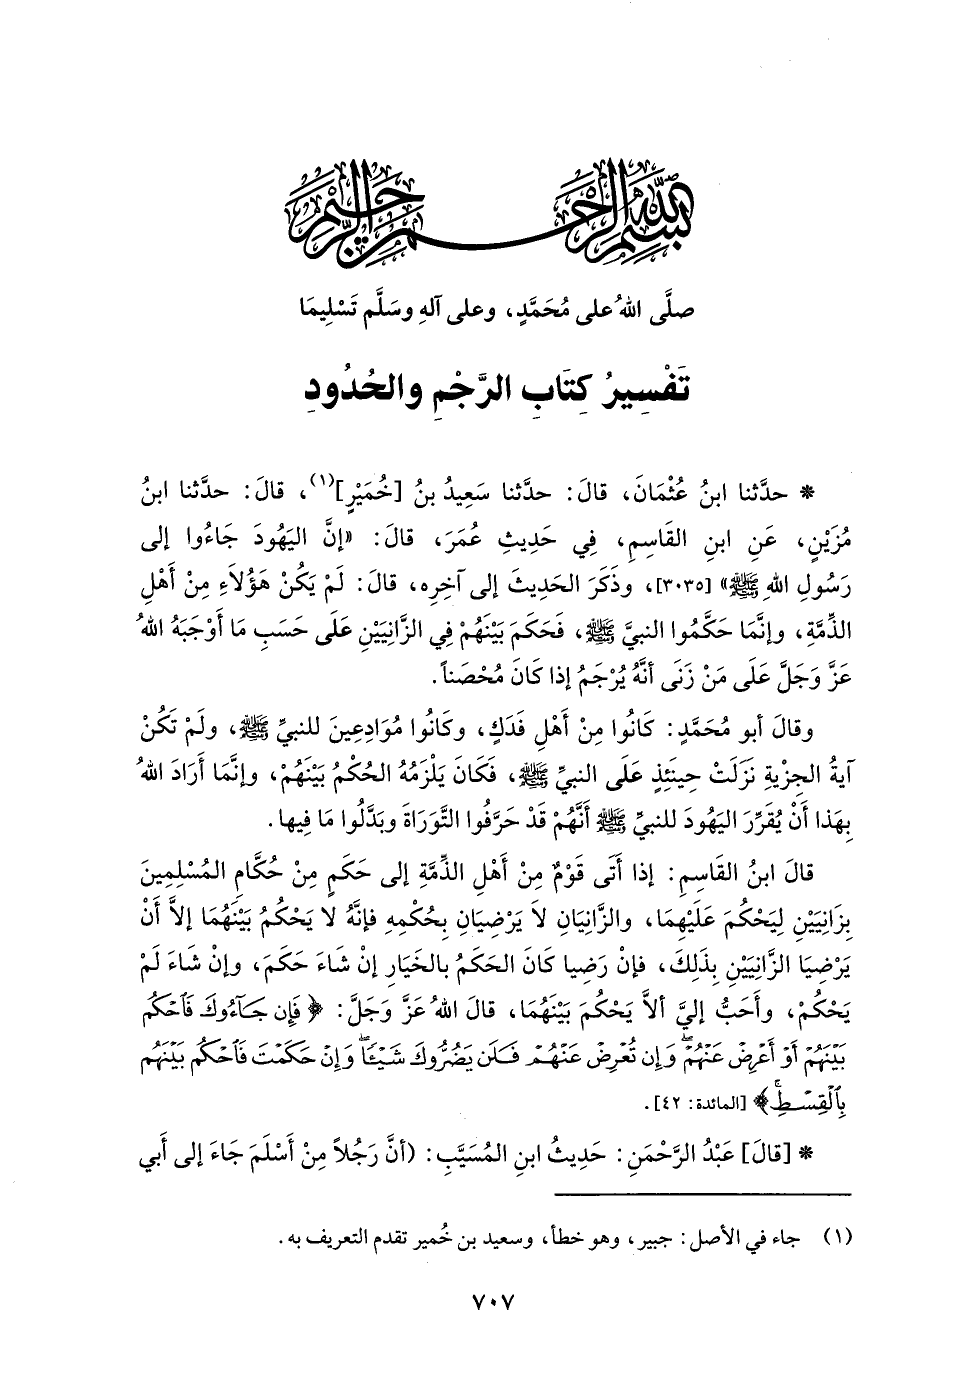 بسم الله الرحمن الرحيم
صلَّى اللهُ على مُحَمَّدٍ، وعلى آلهِ وسَلَّم تَسْلِيمَا
تَفْسِيرُ كِتَابِ الرَّجْمِ والحُدُودِ
* حدَّثنا ابنُ عُثْمَانَ، قالَ: حدَّثنا سَعِيدُ بنُ [خُمَيْرٍ](١)، قالَ: حدَّثنا ابنُ
مُزَيْنٍ، عَنِ ابنِ القَاسِمِ، فِي حَدِيثِ عُمَرَ، قالَ: «إنَّ اليَهُودَ جَاءُوا إلى
رَسُولِ اللهِ ﷺ» [٣٠٣٥]، وذَكَرَ الحَدِيثَ إلى آخِرِه، قالَ: لَمْ يَكُنْ هَؤُلاَءِ مِنْ أَهْلِ
الذِّمَّةِ، وإنَّمَا حَكَّمُوا النبيَّ ﷺ، فَحَكَمَ بَيْنَهُمْ فِي الزَّانِيَيْنِ عَلَى حَسَبِ مَا أَوْجَبَهُ اللهُ
عَزَّ وَجَلَّ عَلَى مَنْ زَنَى أنَّهُ يُرْجَمُ إذا كَانَ مُحْصَناً.
وقالَ أبو مُحَمَّدٍ: كَانُوا مِنْ أَهْلِ فَدَكٍ، وكَانُوا مُوَادِعِينَ للنبيِّ ﷺ، ولَمْ تَكُنْ
آيةُ الجِزْيةِ نَزَلَتْ حِينَئِذٍ عَلَى النبيِّ ﷺ، فَكَانَ يَلْزَمُهُ الحُكْمُ بَيْنَهُمْ، وإنَّمَا أَرَادَ اللهُ
بِهَذا أَنْ يُقَرِّرَ اليَهُودَ للنبيِّ ﷺ أَنَّهُمْ قَدْ حَرَّفُوا التَّوْرَاةَ وبَدَّلُوا مَا فِيها.
قالَ ابنُ القَاسِمِ: إذا أَتَى قَوْمٌ مِنْ أَهْلِ الذِّمَّةِ إلى حَكَمٍ مِنْ حُكَّامِ المُسْلِمِينَ
بِزَانِيَيْنِ لِيَحْكُمَ عَلَيْهِمَا، والزَّانِيَانِ لاَ يَرْضِيَانِ بِحُكْمِهِ فإنَّهُ لا يَحْكُمُ بَيْنَهُمَا إلاَّ أَنْ
يَرْضِيَا الزَّانِيَيْنِ بِذَلِكَ، فإنْ رَضِيا كَانَ الحَكَمُ بالخَيَارِ إنْ شَاءَ حَكَمَ، وإنْ شَاءَ لَمْ
يَحْكُمْ، وأَحَبُّ إليَّ ألاَّ يَحْكُمَ بَيْنَهُمَا، قالَ اللهُ عَزَّ وَجَلَّ: ﴿فَإِن جَآءُوكَ فَٱحْكُم
بَيْنَهُمْ أَوْ أَعْرِضْ عَنْهُمْۖ وَإِن تُعْرِضْ عَنْهُمْ فَلَن يَضُرُّوكَ شَيْـًٔاۖ وَإِنْ حَكَمْتَ فَٱحْكُم بَيْنَهُم
بِٱلْقِسْطِۚ﴾ [المائدة: ٤٢].
* [قالَ] عَبْدُ الرَّحْمَنِ: حَدِيثُ ابنِ المُسَيَّبِ: (أَنَّ رَجُلاً مِنْ أَسْلَمَ جَاءَ إلى أَبي
(١) جاء في الأصل: جبير، وهو خطأ، وسعيد بن خُمير تقدم التعريف به.
٧٠٧